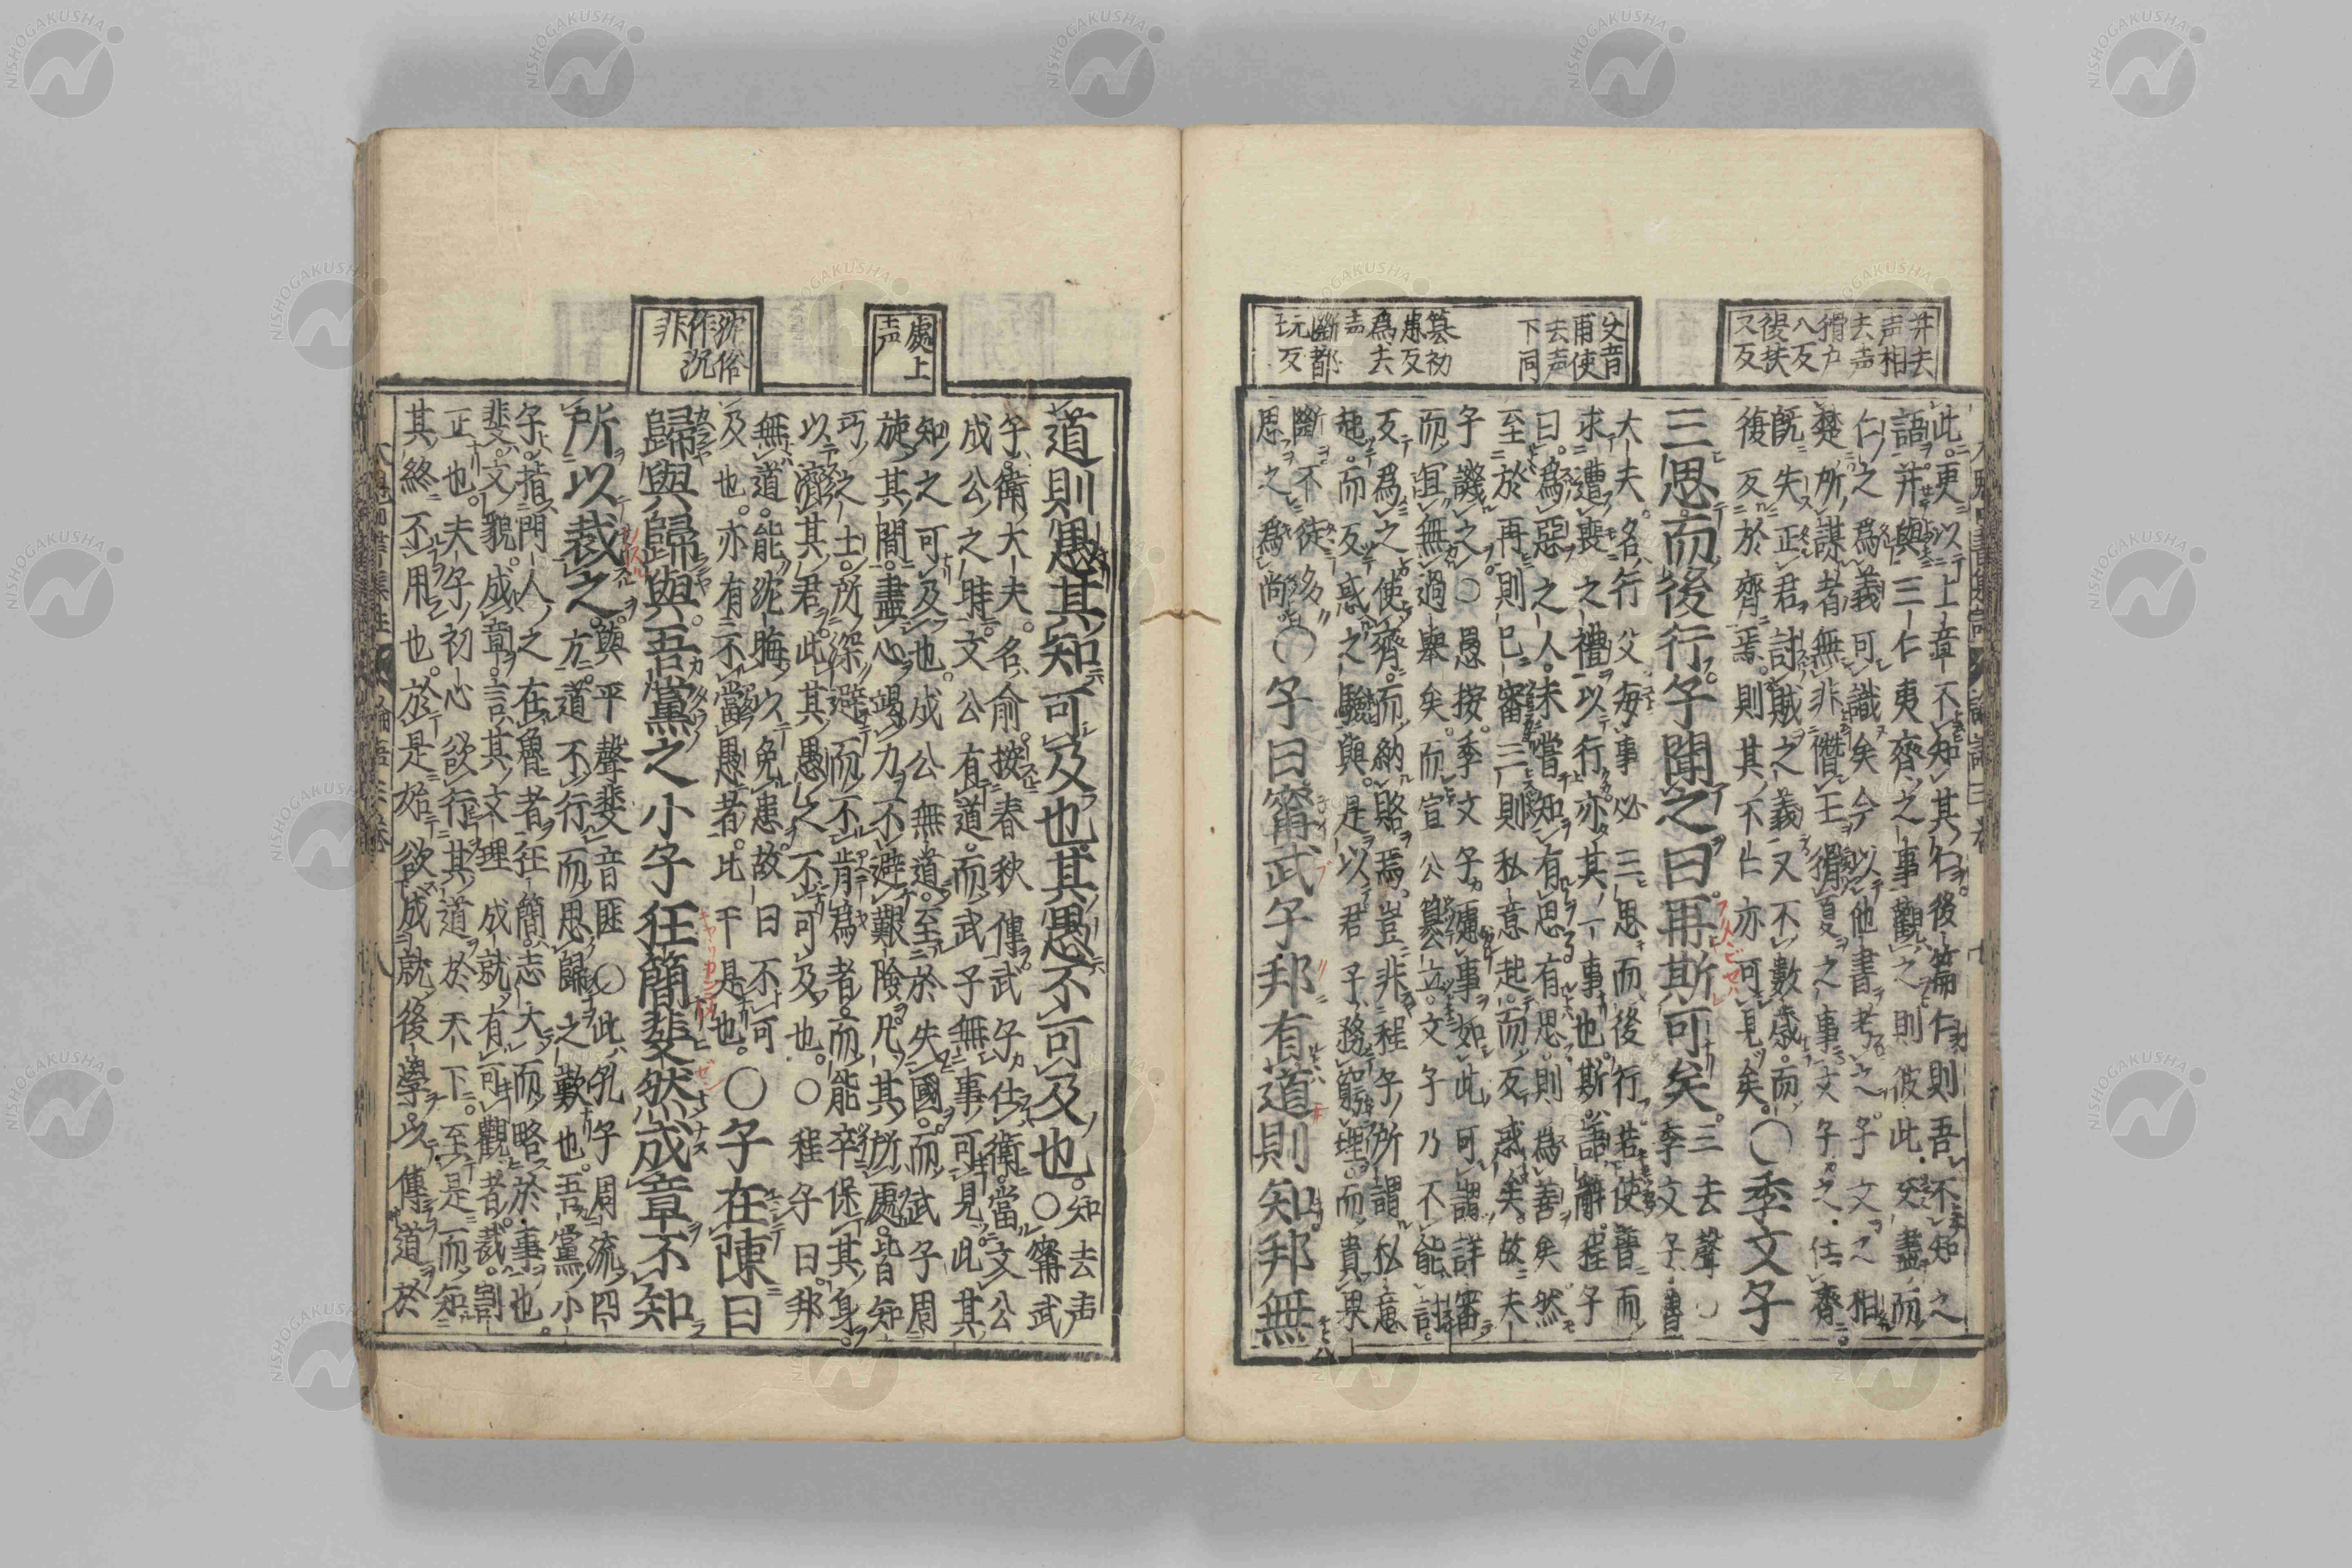 并去
声相
去声
猾户
八反
復扶
又反
父音
甫使
去声
下同
簒初
患反
為去
声
斷都
玩反
此更以上章不知其仁後篇仁則吾不知之
語并與三仁夷齊之事觀之則彼此交盡而
仁之為義可識矣今以他書考之子文之相
楚所謀者無非僭王猾夏之事文子之仕齊
既失正君討賊之義又不數歲而
復反於齊焉則其不仁亦可見矣○季文子
三思而後行子聞之曰再斯可矣
三去聲○
季文子魯
大夫名行父每事必三思而後行若使晉而
求遭喪之禮以行亦其一事也斯語辭程子
曰為惡之人未嘗知有思有思則為善矣然
至於再則已審三則私意起而反惑矣故夫
子譏之○愚按季文子慮事如此可謂詳審
而宜無過舉矣而宣公簒立文子乃不能討
反為之使齊而納賂焉豈非程子所謂私意
起而反惑之驗與是以君子務窮理而貴果
斷不徒多
思之為尚○子曰甯武子邦有道則知邦無
處上
声
沈俗
作沉
非
道則愚其知可及也其愚不可及也○
知去声
甯武
子衛大夫名俞按春秋傳武子仕衛當文公
成公之時文公有道而武子無事可見此其
知之可及也成公無道至於失國而武子周
旋其間盡心竭力不避艱險凡其所處皆知
巧之士所深避而不肯為者而能卒保其身
以濟其君此其愚之不可及也○程子曰邦
無道能沈晦以免患故曰不可
及也亦有不當愚者比干是也○子在陳曰
歸與歸與吾黨之小子狂簡斐然成章不知
所以裁之
與平聲斐音匪○此孔子周流四
方道不行而思歸之歎也吾黨小
子指門人之在魯者狂簡志大而略於事也
斐文貌成章言其文理成就有可觀者裁割
正也夫子初心欲行其道於天下至是而知
其終不用也於是始欲成就後學以傳道於
NISHOGAKUSHA